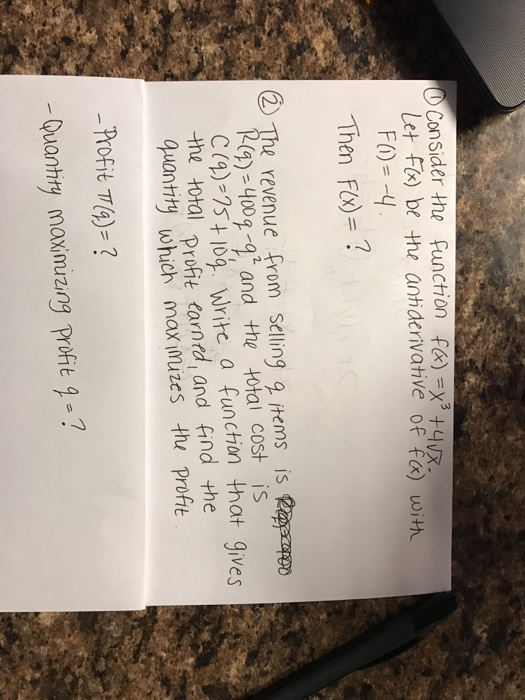 ① Consider the function f(x) = x³ + 4√x.
Let F(x) be the antiderivative of f(x) with
F(1) = -4.
Then F(x) = ?
② The revenue from selling q items is
R(q) = 400q - q², and the total cost is
C(q) = 75 + 10q. Write a function that gives
the total profit earned, and find the
quantity which maximizes the profit.
- Profit π(q) = ?
- Quantity maximizing profit q = ?